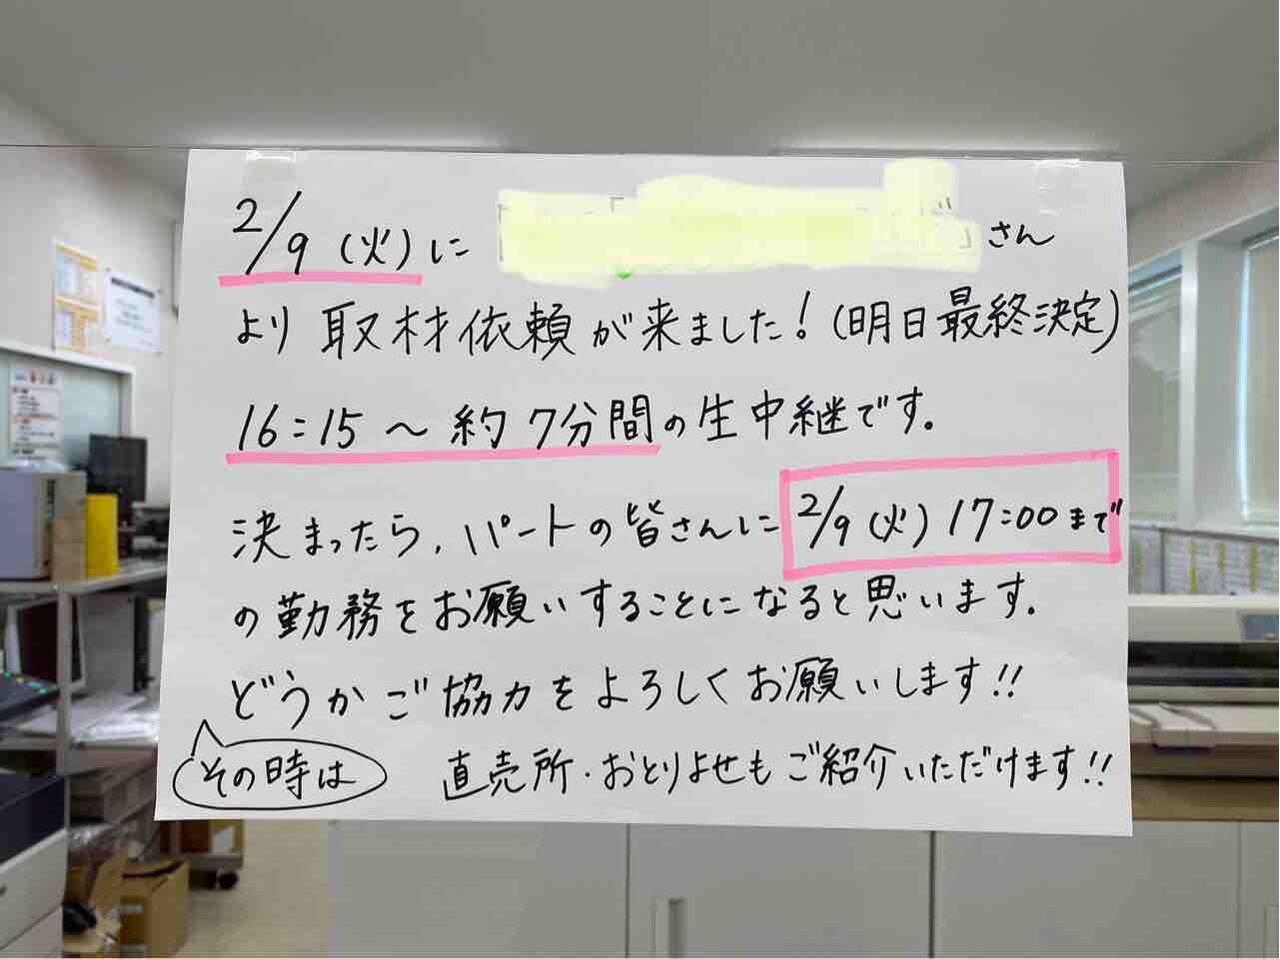 2/9(火)に さん
より 取材依頼が来ました!(明日最終決定)
16:15〜約7分間の生中継です。
決まったら、パートの皆さんに2/9(火)17:00まで
の勤務をお願いすることになると思います。
どうかご協力をよろしくお願いします!!
その時は
直売所・おとりよせもご紹介いただけます!!